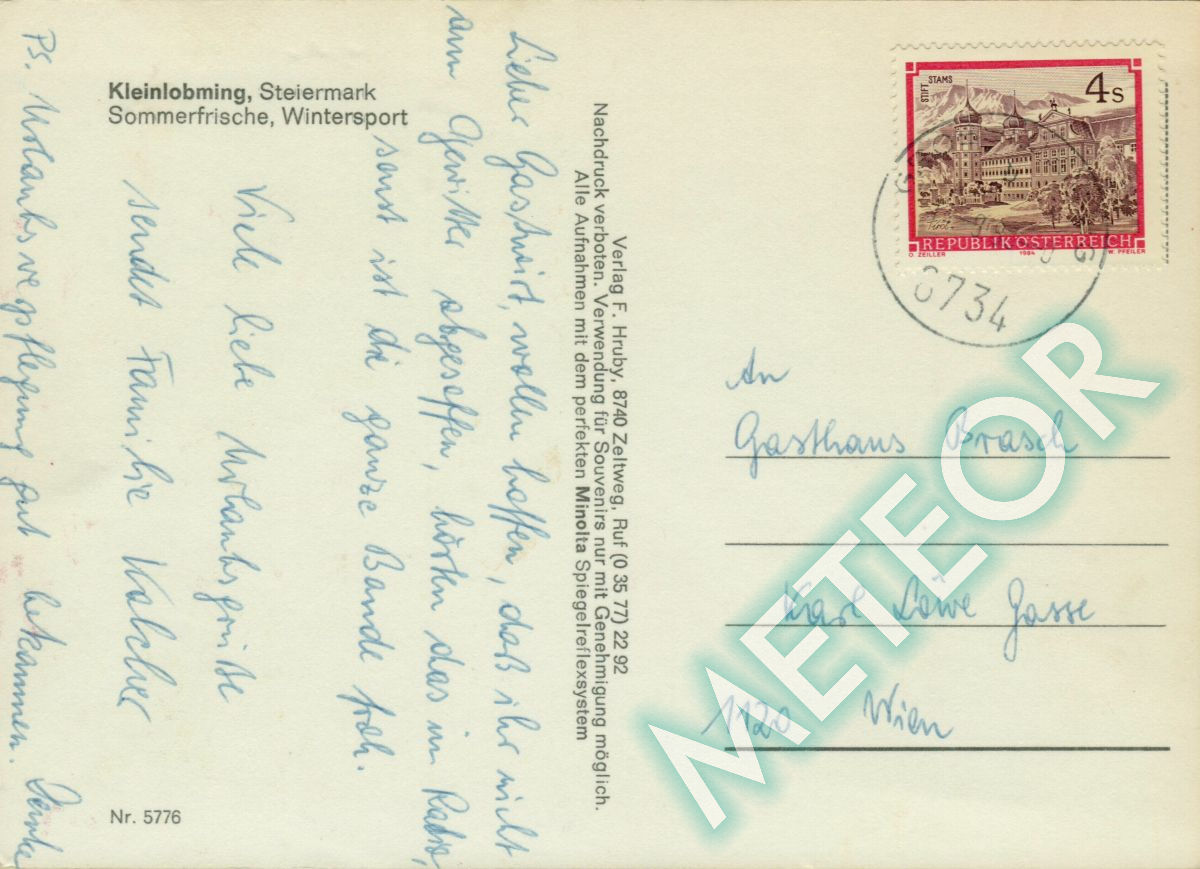 Kleinlobming, Steiermark
Sommerfrische, Wintersport
Lieber Gastwirt, wollen hoffen, daß ihr nicht
am Gewitter abgesoffen, hörten das im Radio,
sonst ist die ganze Bande froh.
Viele liebe Urlaubsgrüße
sendet Familie Kalcher
PS. Urlaubsverpflegung gut bekommen. Danke
Nr. 5776
Verlag F. Hruby, 8740 Zeltweg, Ruf (0 35 77) 22 92
Nachdruck verboten. Verwendung für Souvenirs nur mit Genehmigung möglich.
Alle Aufnahmen mit dem perfekten Minolta Spiegelreflexsystem
STIFT STAMS
4 S
Tirol
REPUBLIK ÖSTERREICH
O. ZEILLER 1984 W. PFEILER
8734
An
Gasthaus Brasch
Karl Löwe Gasse
1120 Wien
METEOR